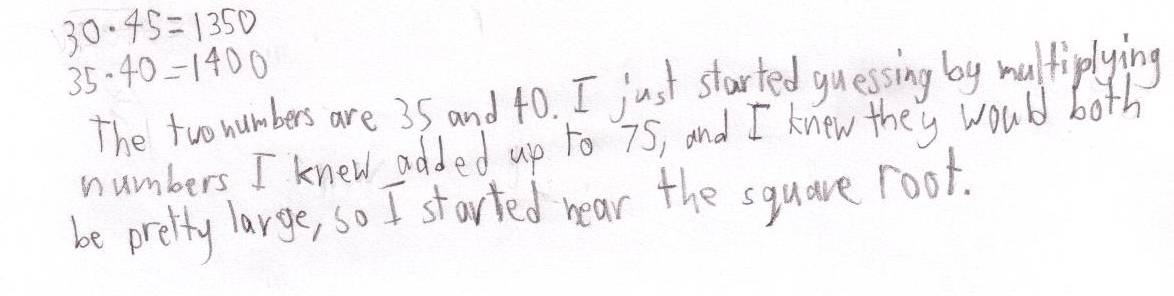 30·45=1350
35·40=1400
The two numbers are 35 and 40. I just started guessing by multiplying
numbers I knew added up to 75, and I knew they would both
be pretty large, so I started near the square root.